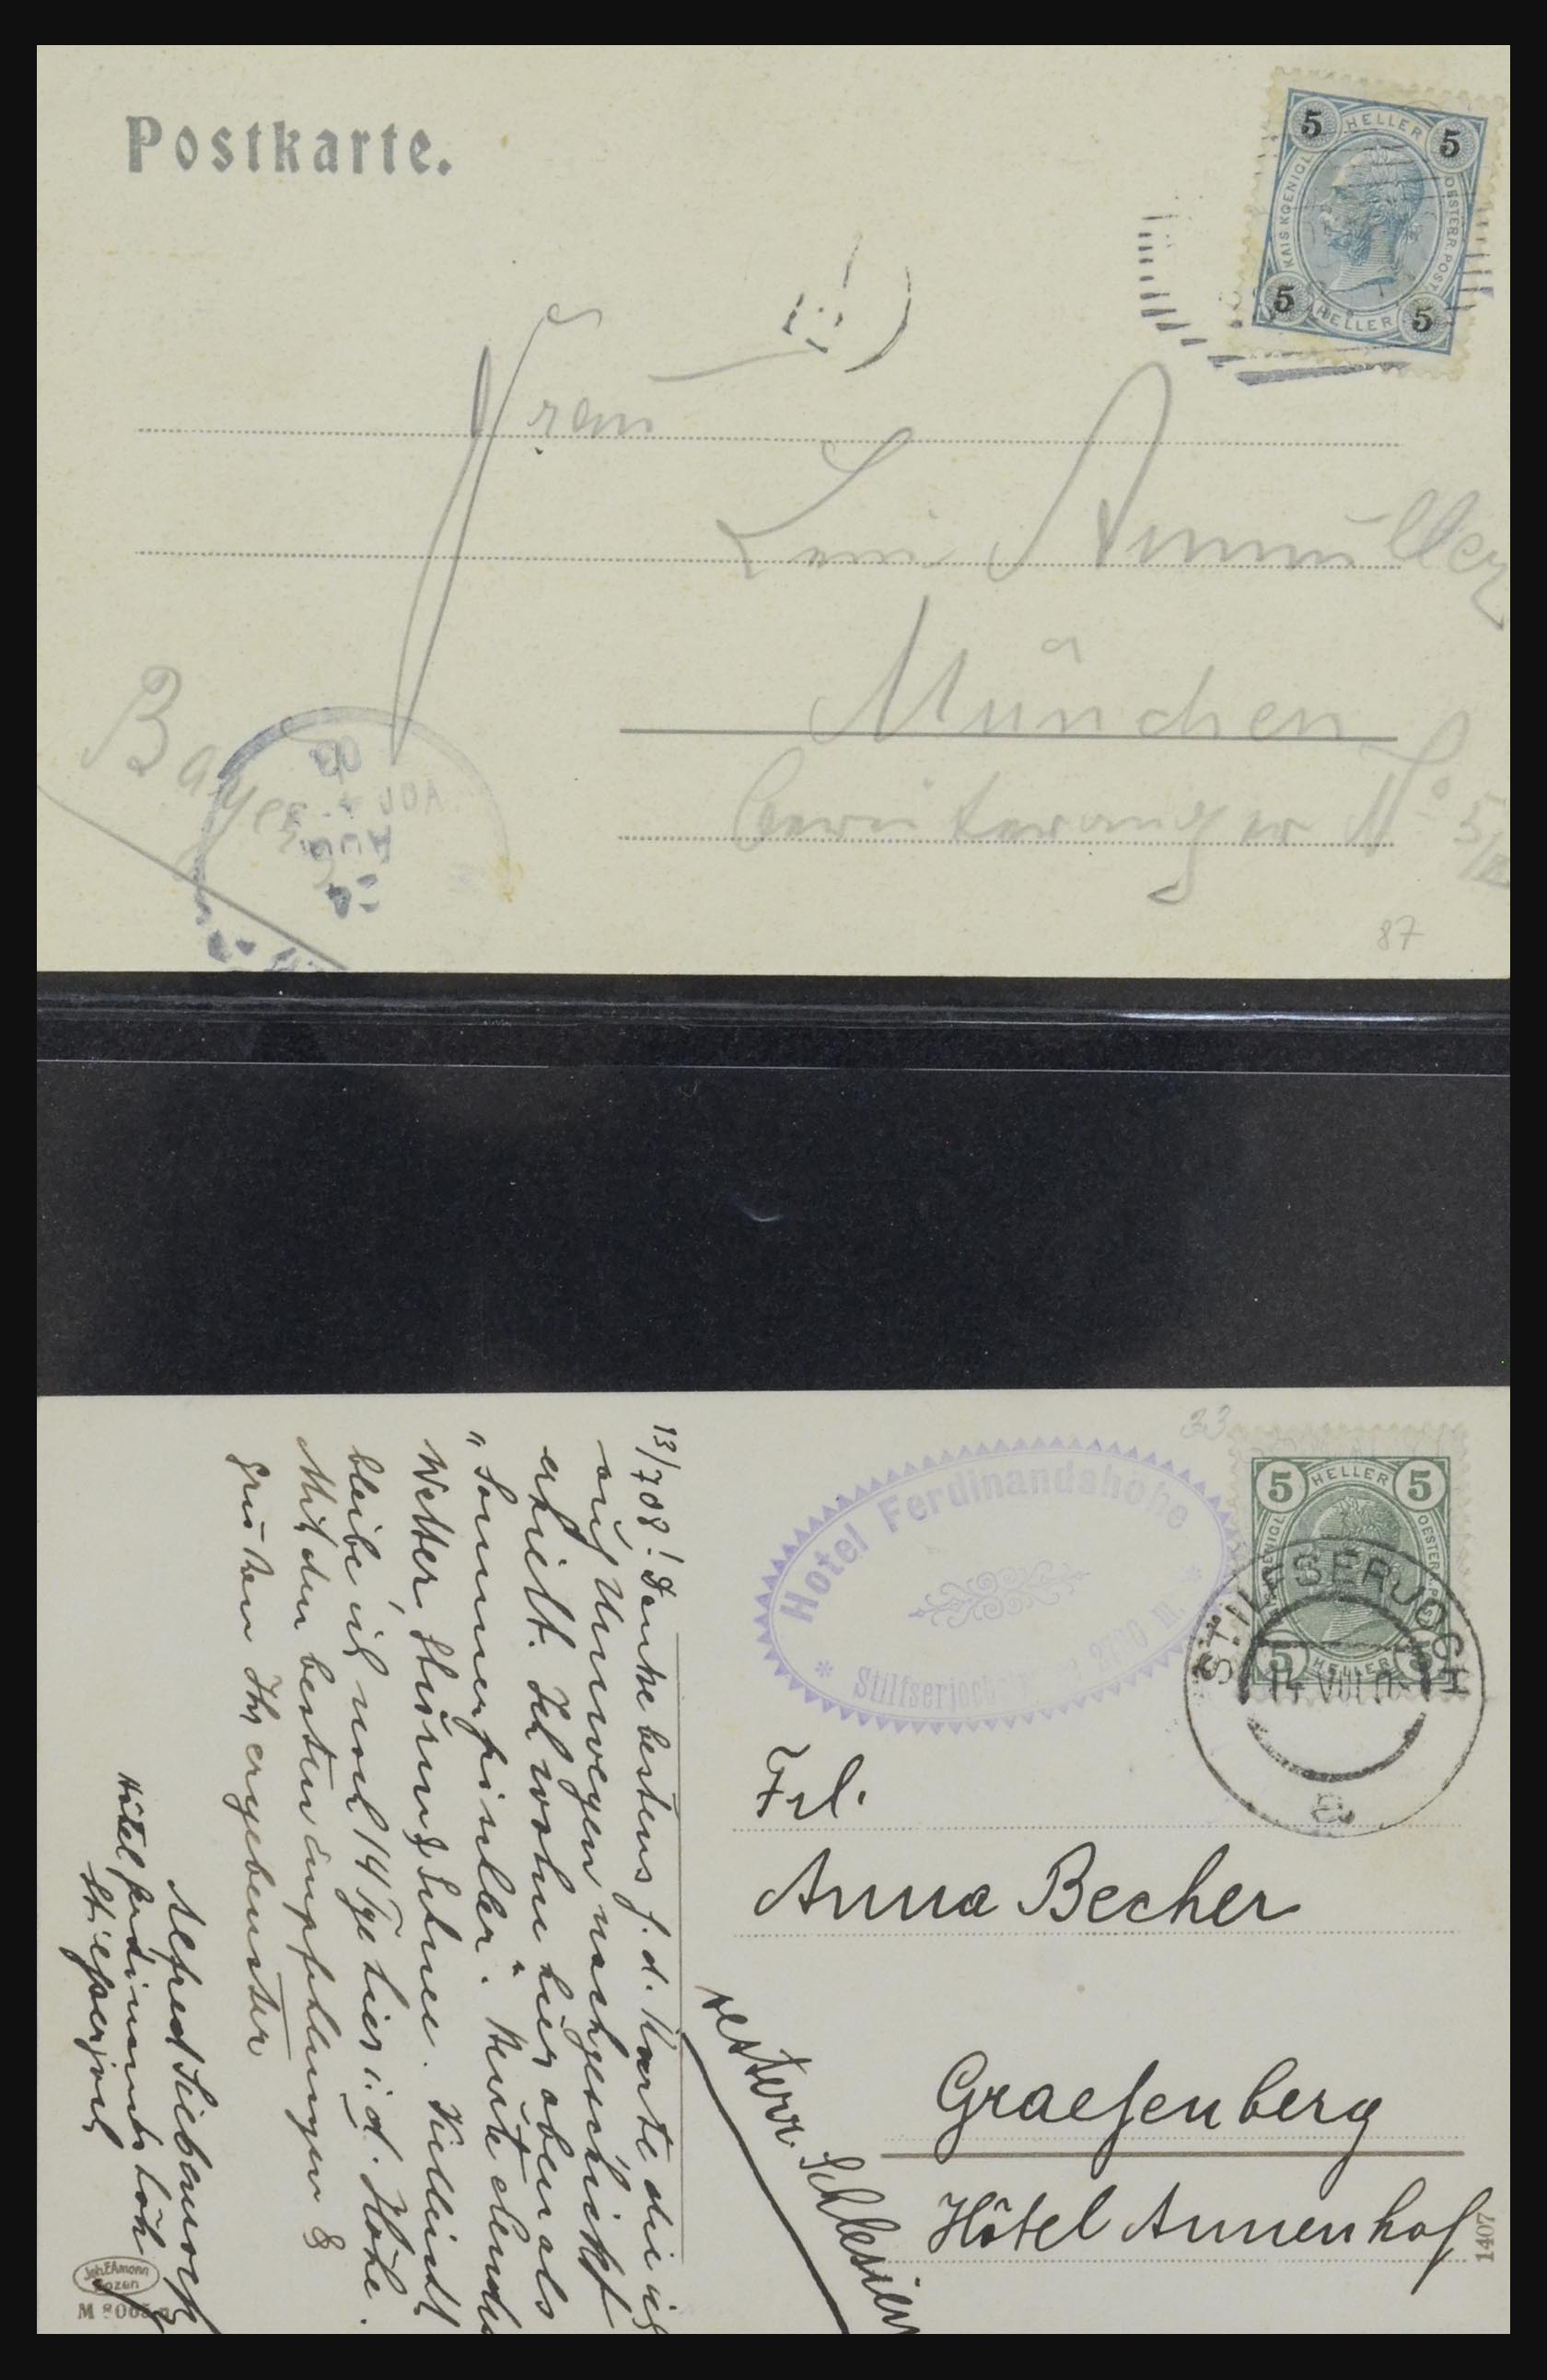 Postkarte.
5 HELLER 5
KAIS KOENIGL OESTERR. POST
5 HELLER 5
Frau
München
Bayern
No 5/
87
33
Hotel Ferdinandshöhe
Stilfserjoch 2760 m.
5 HELLER 5
5 HELLER 5
STILFSERJOCH
14 VIII 0
a
13/7 08! Danke bestens f. d. Karte die ich
auf Umwegen nachgeschickt
erhielt. Ich wohne hier oben als
"Sommerfrischler". Heute elendes
Wetter, Sturm & Schnee. Vielleicht
bleibe ich noch 14 Tge hier i. d. Höhe.
Mit den besten Empfehlungen &
Grüssen Ihr ergebenster
Alfred
Hôtel Ferdinandshöhe
Stilfserjoch
Frl.
Anna Becher
Graefenberg
Hôtel Annenhof
oesterr. Schlesien
1407
Joh. F. Amonn
Bozen